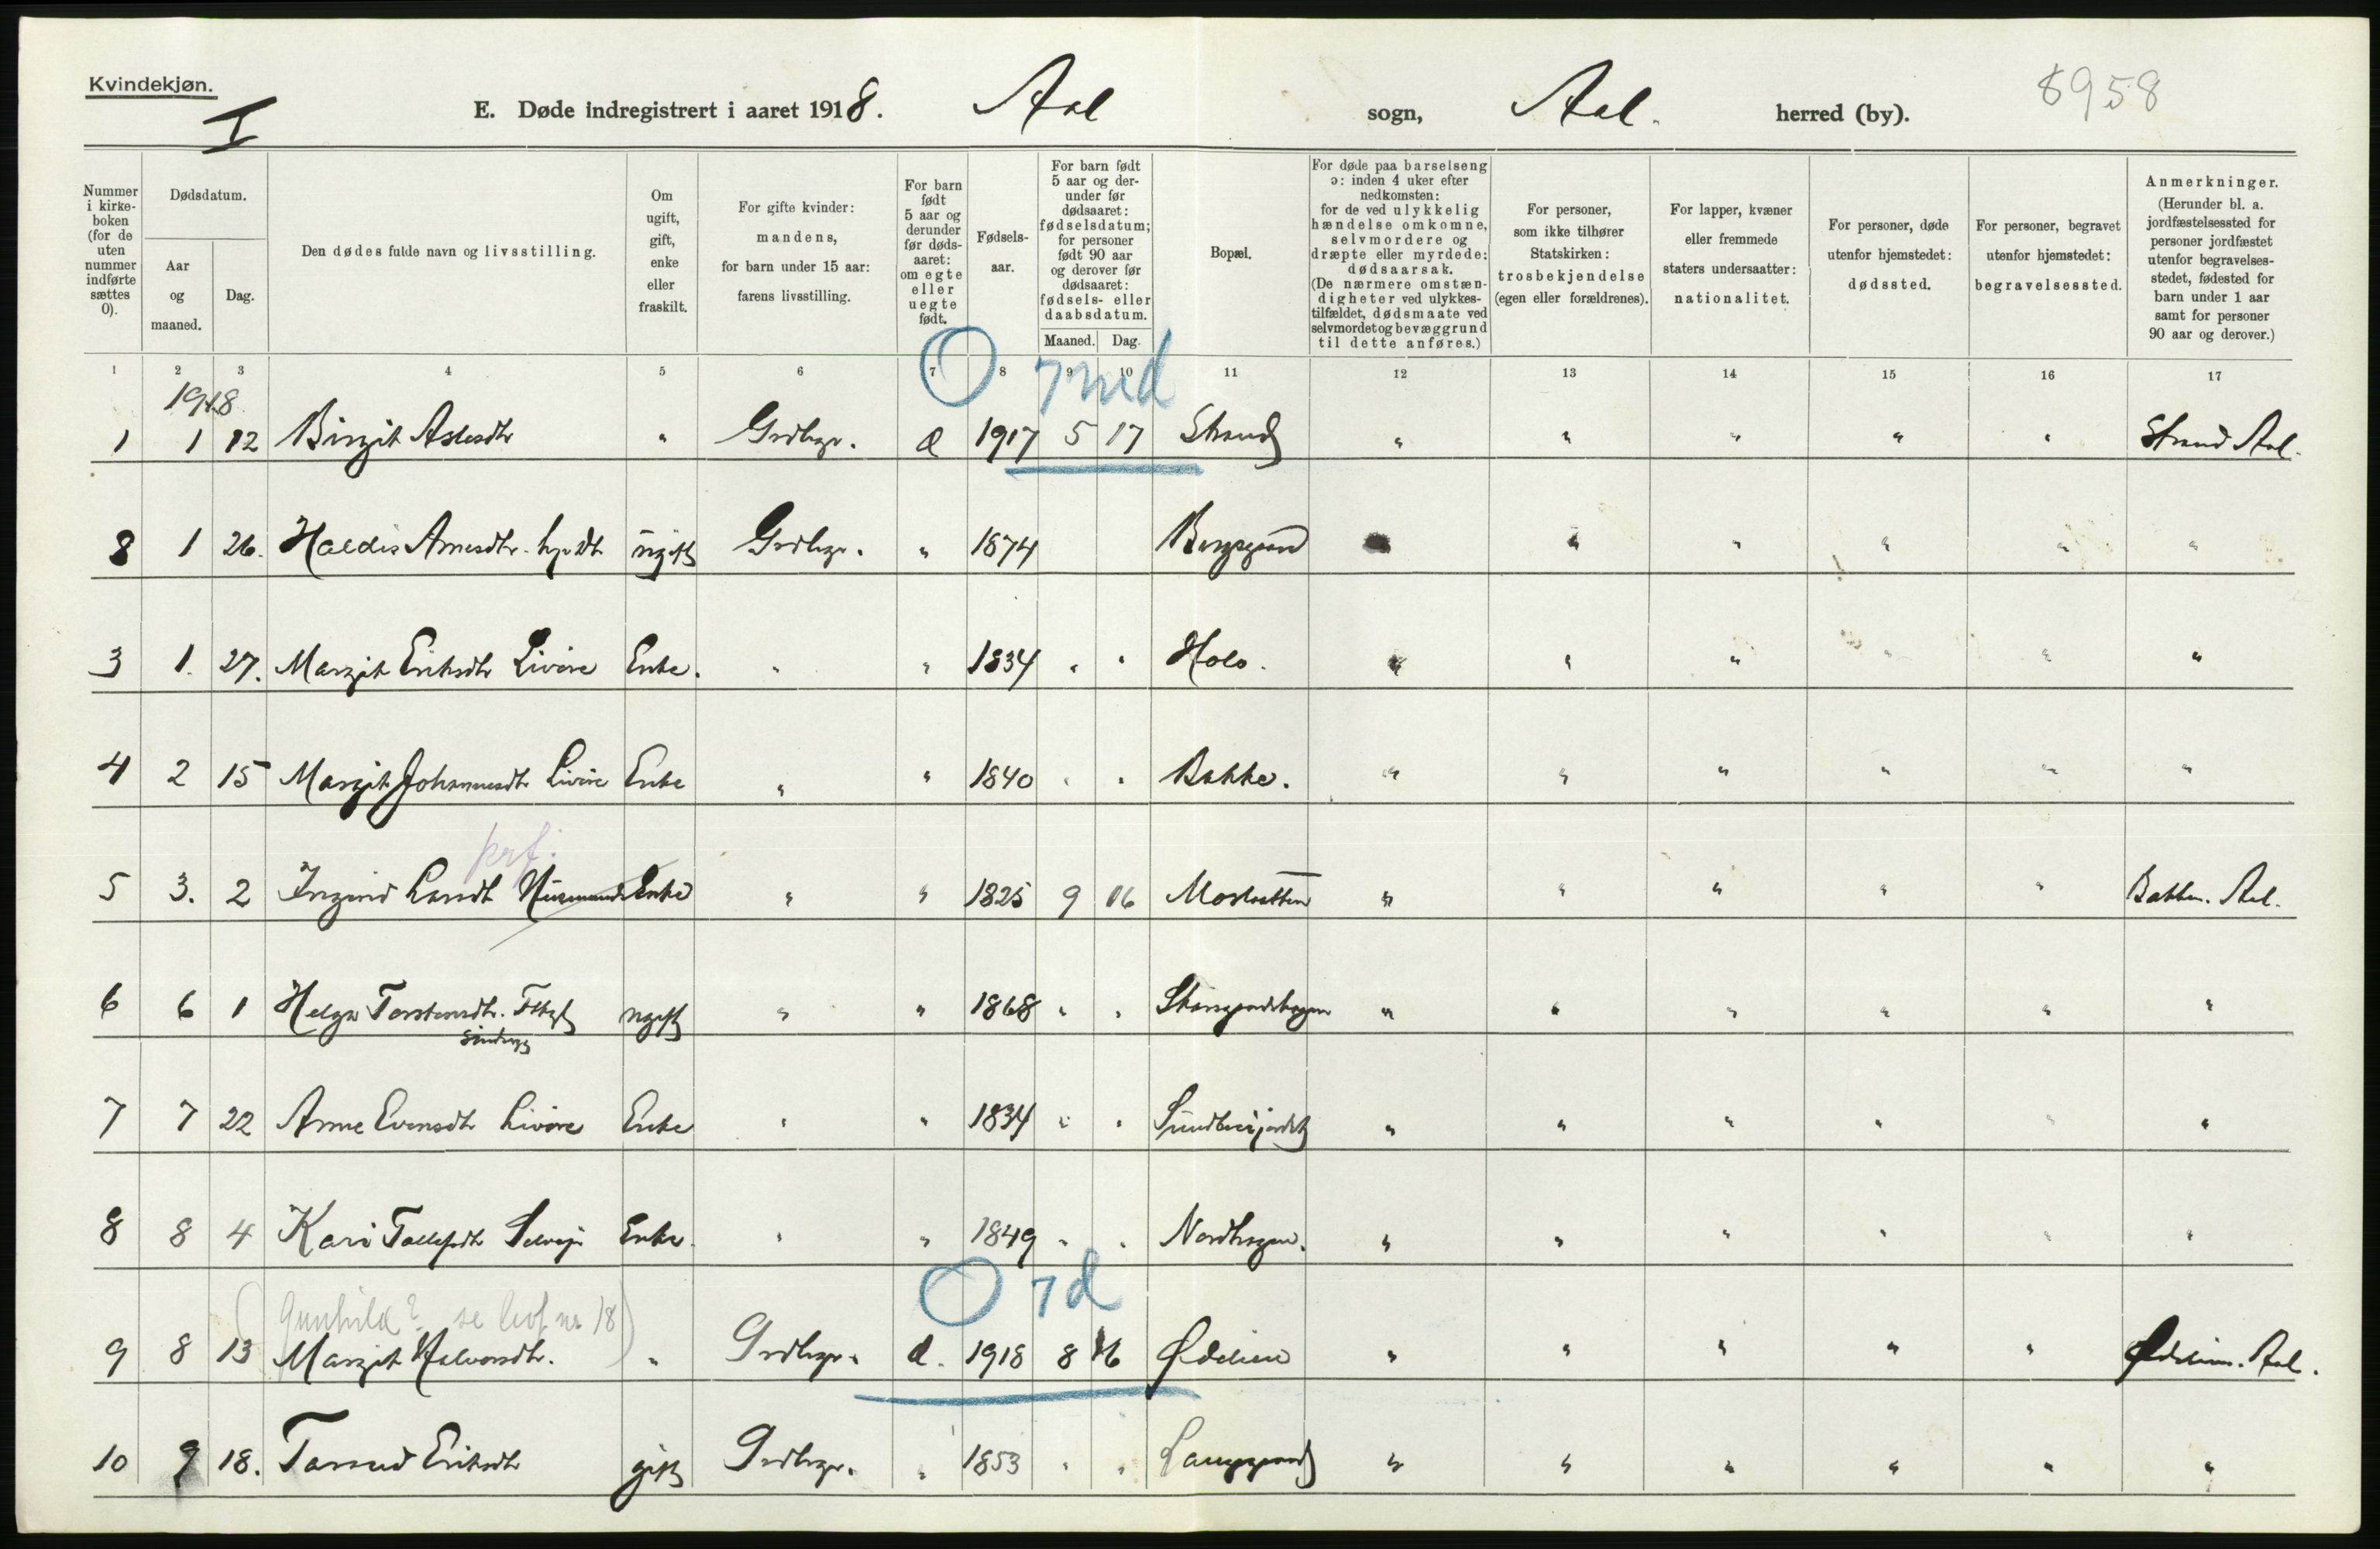 Kvindekjøn.
I
E. Døde indregistrert i aaret 1918. Aal sogn, Aal. herred (by). 8958
Nummer i kirkeboken (for de uten nummer indførte sættes 0).
Dødsdatum.
Aar og maaned.
Dag.
Den dødes fulde navn og livsstilling.
Om ugift, gift, enke eller fraskilt.
For gifte kvinder: mandens, for barn under 15 aar: farens livsstilling.
For barn født 5 aar og derunder før dødsaaret: om egte eller uegte født.
Fødselsaar.
For barn født 5 aar og derunder før dødsaaret: fødselsdatum; for personer født 90 aar og derover før dødsaaret: fødsels- eller daabsdatum.
Maaned. Dag.
Bopæl.
For døde paa barselseng ɔ: inden 4 uker efter nedkomsten: for de ved ulykkelig hændelse omkomne, selvmordere og dræpte eller myrdede: dødsaarsak. (De nærmere omstændigheter ved ulykkestilfældet, dødsmaate ved selvmordet og bevæggrund til dette anføres.)
For personer, som ikke tilhører Statskirken: trosbekjendelse (egen eller forældrenes).
For lapper, kvæner eller fremmede staters undersaatter: nationalitet.
For personer, døde utenfor hjemstedet: dødssted.
For personer, begravet utenfor hjemstedet: begravelsessted.
Anmerkninger. (Herunder bl. a. jordfæstelsessted for personer jordfæstet utenfor begravelsesstedet, fødested for barn under 1 aar samt for personer 90 aar og derover.)
1 2 3 4 5 6 7 8 9 10 11 12 13 14 15 16 17
1918 0 7 md
1 1 12 Birgit Aslesdtr " Grdbrgr. e 1917 5 17 Strand " " " " " Strand Aal.
8 1 26. Haldis Arnesdtr. ugift Grdbrgr. " 1874 " " " " "
3 1. 27. Margit Eriksdtr Livøre Enke. " " 1834 " " Holo. " " " " " "
4 2 15 Margit Johannesdtr Livøre Enke " " 1840 " " Bakke. " " " " " "
prf.
5 3. 2 Ingrid Larsdtr Enke " " 1825 9 16 " " " " " Bakken. Aal.
6 6 1 Helga Torstensdtr. ugift " " 1868 " " " " " " " "
Sindssyg
7 7 22 Anne Evensdtr Livøre Enke " " 1834 " " " " " " " "
8 8 4 Kari Tollefsdtr Enke. " " 1849 " " Nordhagen. " " " " " "
Gunhild? se levf nr 18) 0 7 d
9 8 13 Margit Halvorsdtr. " Grdbrgr. e. 1918 8 6 Ødelien " " " " " Ødelien. Aal.
10 9 18. Eriksdtr gift Grdbrgr. " 1853 " " Langgaard " " " " " "